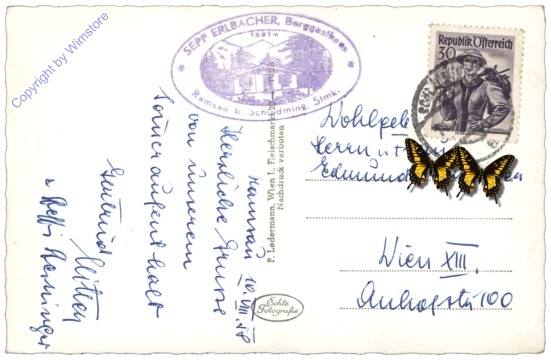 Copyright by Wimstore
SEPP ERLBACHER, Berggasthaus
Ramsau b. Schladming, Stmk.
Republik Österreich
30
Ramsau 10.VIII.58
Herzliche Grüsse
von unserem
Sommeraufenthalt
Gertrud
u. Steffi
P. Ledermann, Wien I, Fleischmarkt 20
Nachdruck verboten
Echte
Fotografie
Herrn u.
Edmund
Wien XIII.
100